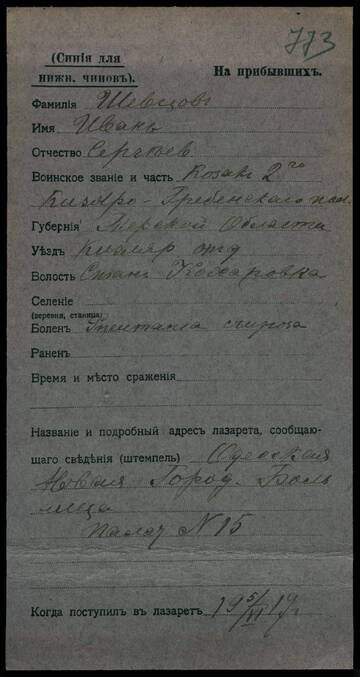 773
(Синія для
нижн. чиновъ).
На прибывшихъ.
Фамилія Шевцовъ
Имя Иванъ
Отчество Сергѣев
Воинское званіе и часть Козакъ 2го
Кизляро-Гребенскаго пол.
Губернія Терской Области
Уѣздъ Кизляр отд
Волость Стан
Селеніе
(деревня, станица)
Боленъ
Раненъ
Время и мѣсто сраженія
Названіе и подробный адресъ лазарета, сообщаю-
щаго свѣдѣнія (штемпель) Одесская
Новая Город. Боль
ница
палат N 15
Когда поступилъ въ лазаретъ 19 5/VI 17 г